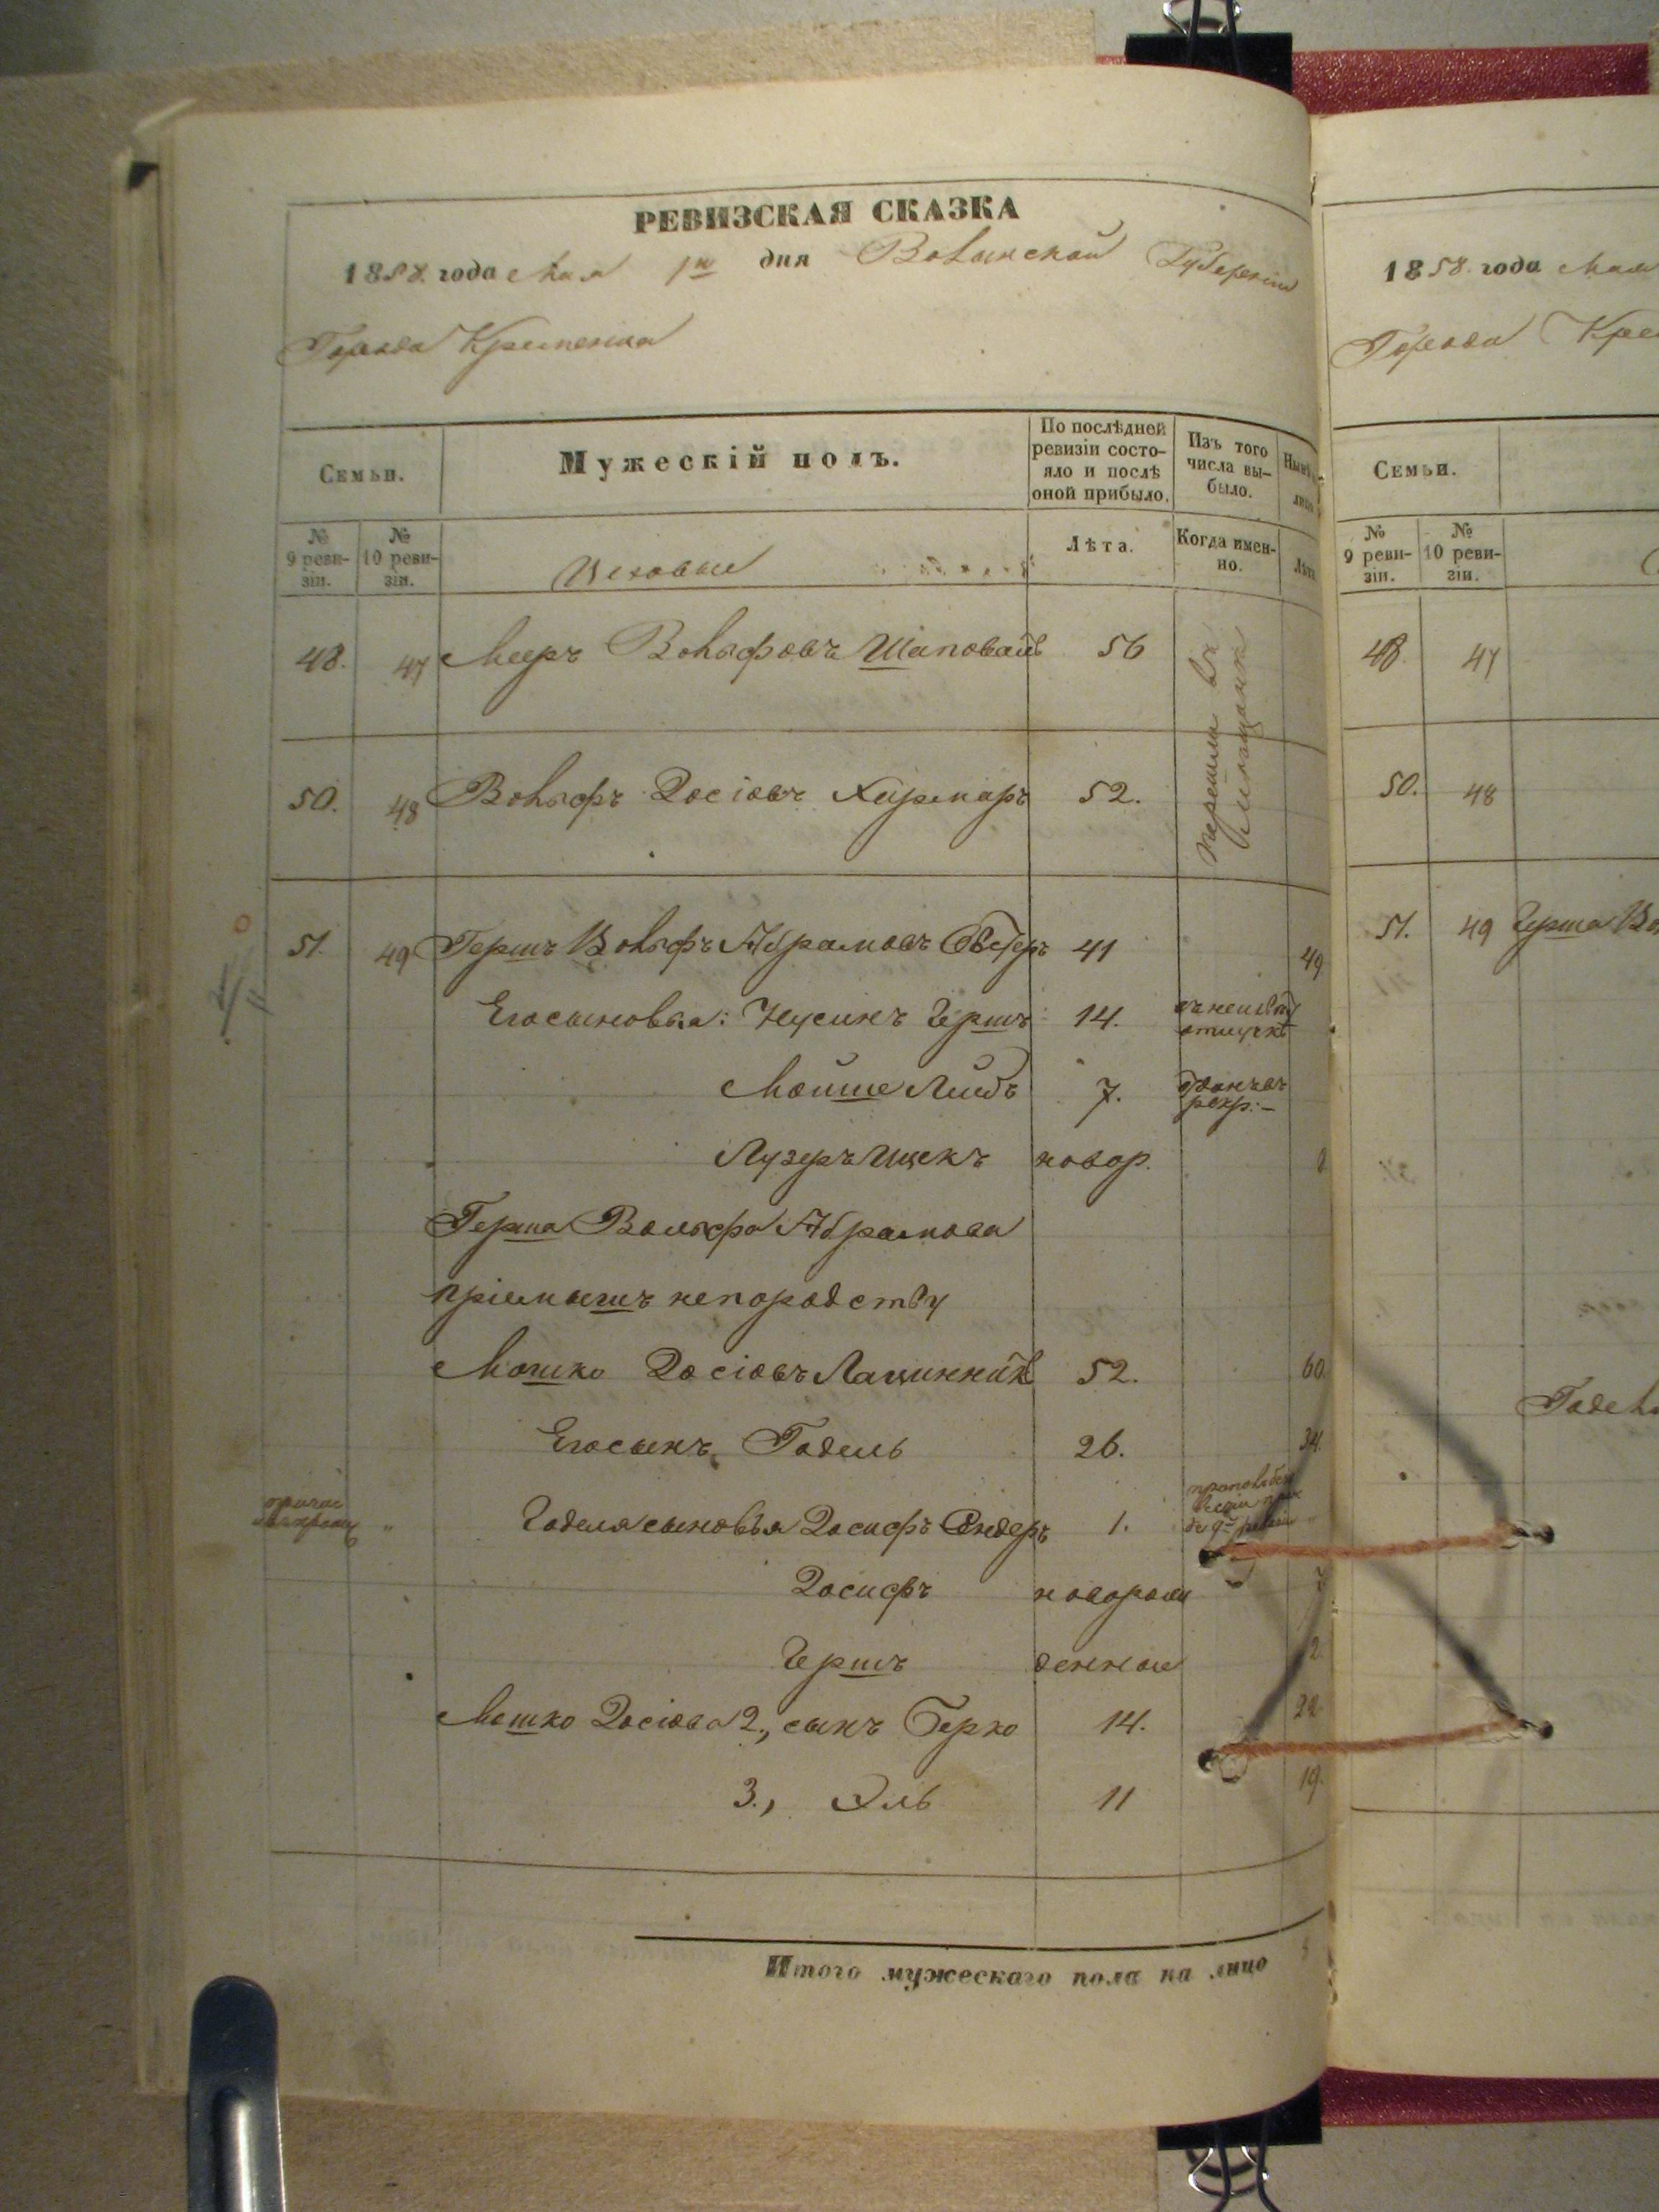 РЕВИЗСКАЯ СКАЗКА
1858 года Мая 1го дня Волынской Губерніи
Города Кременца
Семьи.
Мужескій полъ.
По послѣдней ревизіи состо-
яло и послѣ
оной прибыло.
Изъ того
числа вы-
было.
№
9 реви-
зіи.
№
10 реви-
зіи.
Цеховые
Лѣта.
Когда имен-
но.
Лѣта
48. 47 Мееръ Вольфовъ Шаповалъ 56
перешли въ
50. 48 Вольфъ Іосіовъ 52.
51. 49 Гершъ Вольфъ Абрамовъ 41 49
Его сыновья: Нусинъ Гершъ 14.
Мойше Лейбъ 7. отданъ въ
рекр:
Лузеръ Ицекъ новор.
Герша Вольфа Абрамова
пріемышъ не по родству
Мошко Іосіовъ 52. 60
Его сынъ Годель 26. 34.
Годеля сыновья Іосифъ Сендеръ 1.
Іосифъ новорож
Гершъ денные 2.
Мошко Іосіова 2., сынъ Берко 14. 22.
3., Эль 11 19.
Итого мужескаго пола на лицо
1858 года Мая
Города Кре
Семьи.
№
9 реви-
зіи.
№
10 реви-
зіи.
48 47
50. 48
51. 49 Герша Во
Годель